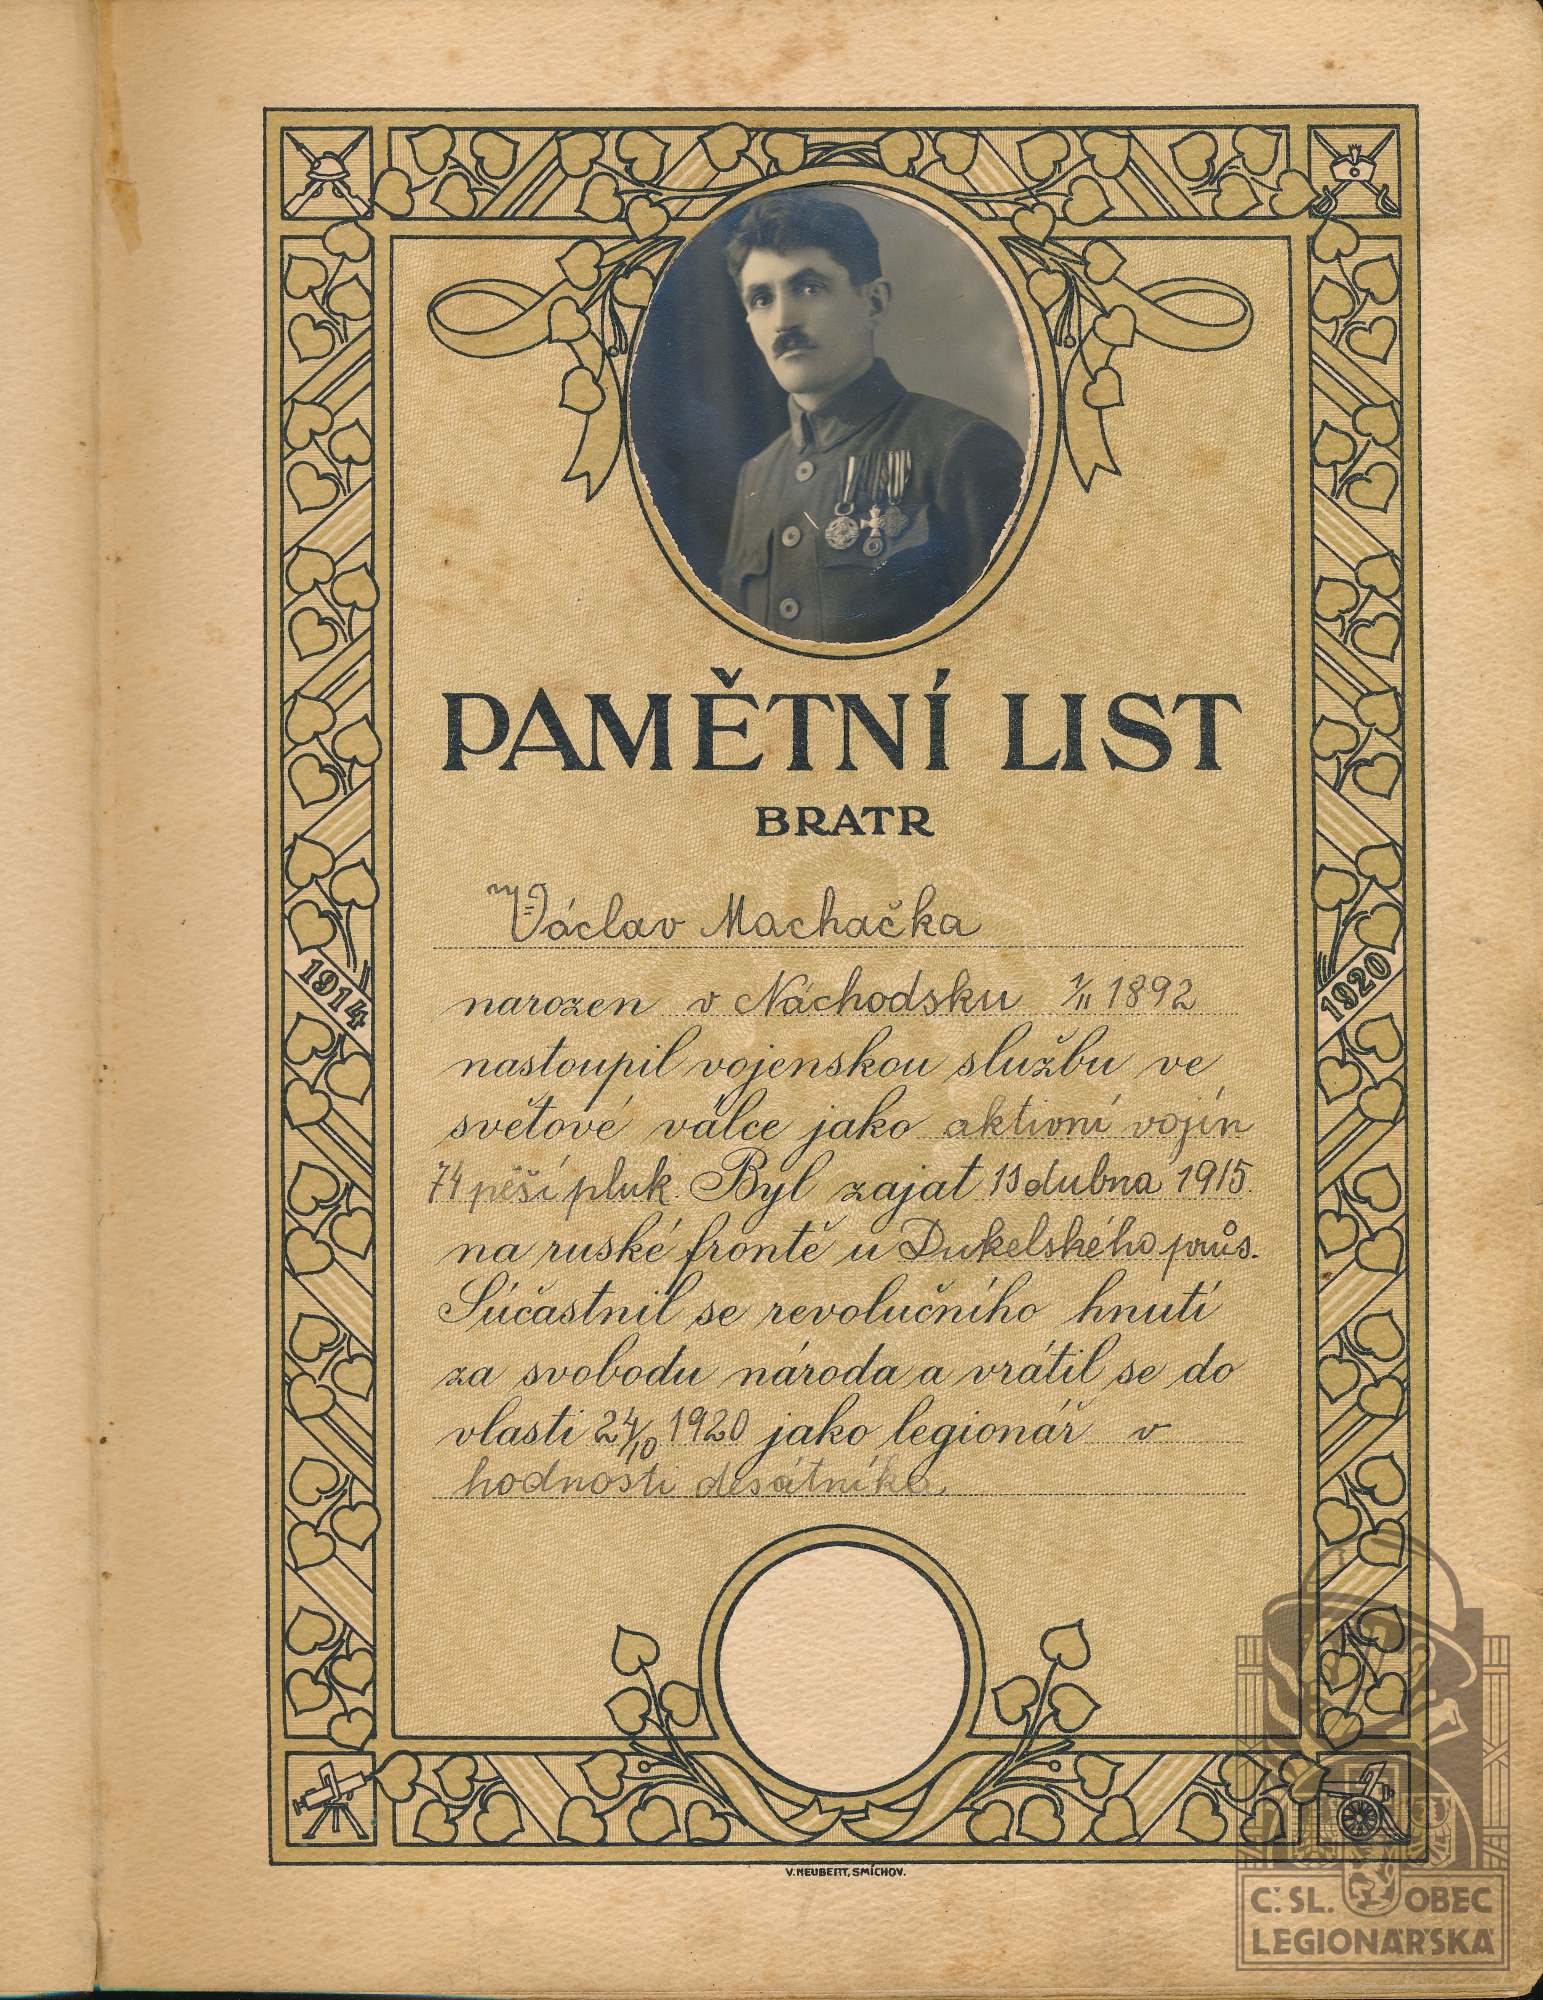 PAMĚTNÍ LIST
BRATR
Václav Machačka
narozen v Náchodsku 1/II 1892
nastoupil vojenskou službu ve
světové válce jako aktivní vojín
74 pěší pluk. Byl zajat dubna 1915.
na ruské frontě u Dukelského průs.
Súčastnil se revolučního hnutí
za svobodu národa a vrátil se do
vlasti 24/10 1920 jako legionář v
hodnosti desátníka.
1914
1920
V. NEUBERT, SMÍCHOV.
Č. SL. OBEC
LEGIONÁŘSKÁ